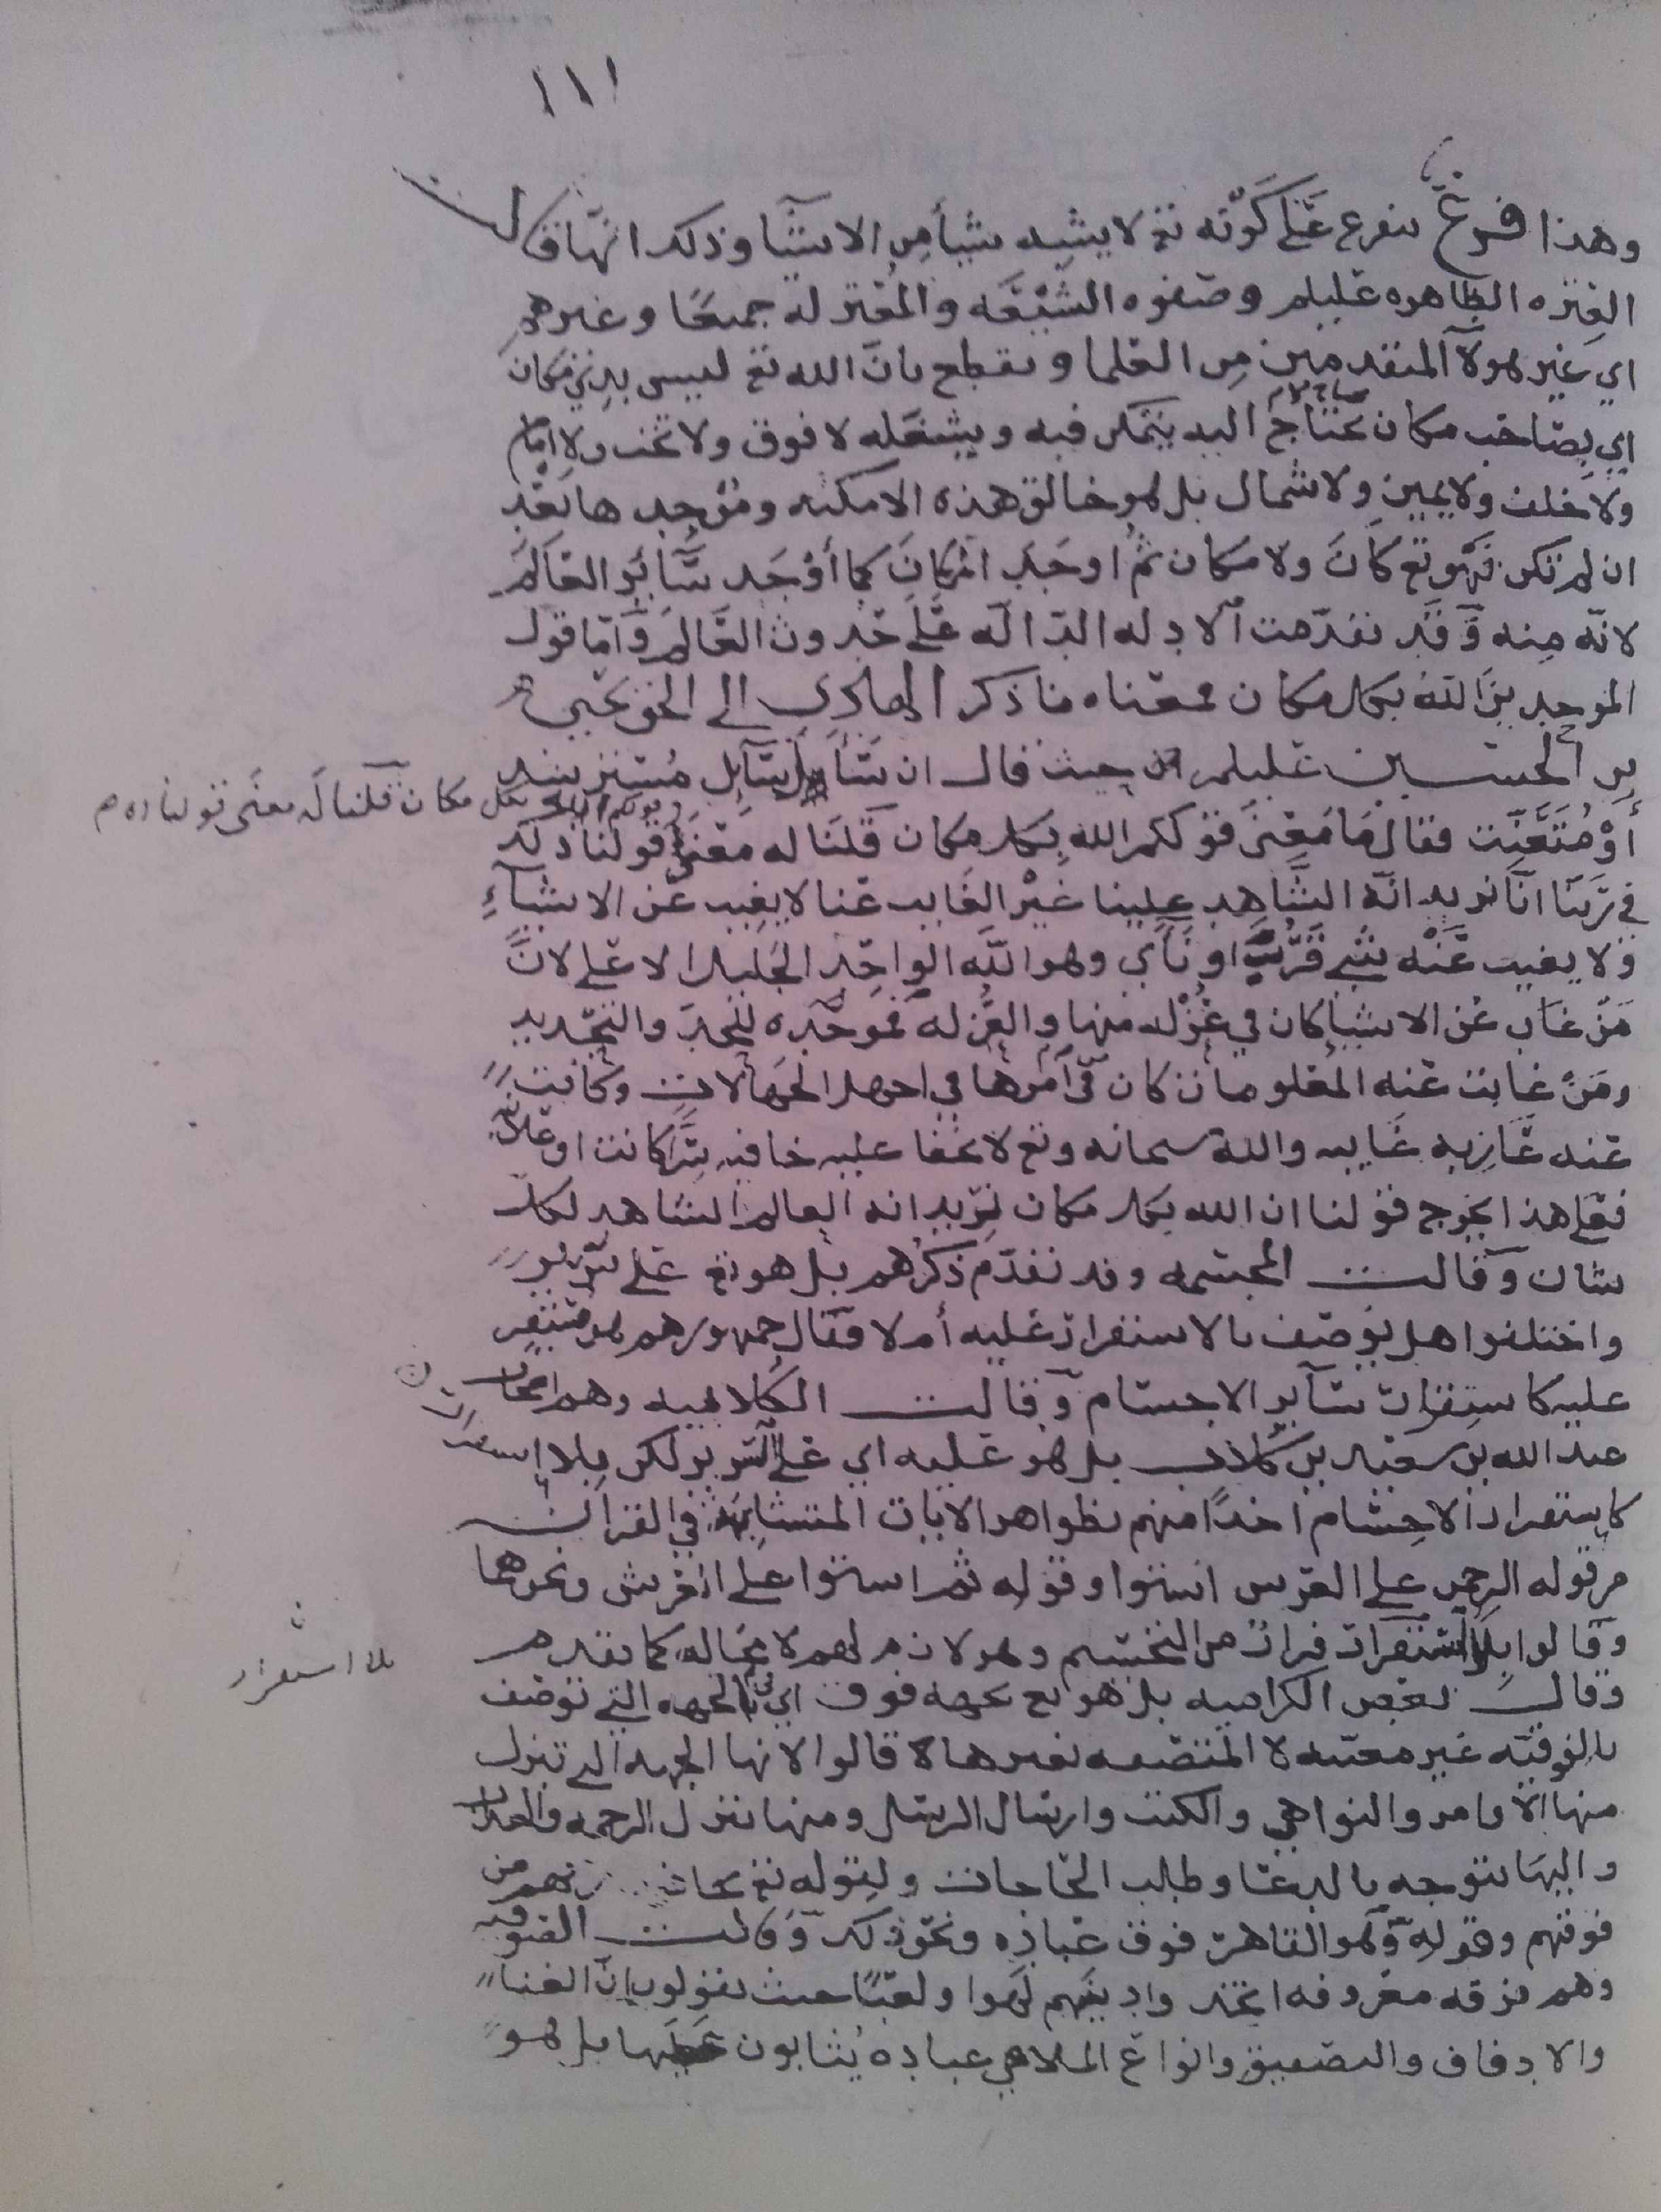 ١١١
وهذا فرع يتفرع على كونه تع لا يشبه شيأ من الاشيا وذلك انها قالت
العتره الطاهره عليلم وصفوه الشيعه والمعتزله جميعا وغيرهم
اي غير هولآ المتقدمين من العلما ونقطع بان الله تع ليس بذي مكان
اي بصاحب مكان يحتاج اليه يتمكن فيه ويشغله لا فوق ولا تحت ولا امام
ولا خلف ولا يمين ولا شمال بل هو خالق هذه الامكنه وموجدها بعد
ان لم تكن فهو تع كان ولا مكان ثم اوجد المكان كما أوجد سائر العالم
لانه منه وقد تقدمت الادله الداله على حدوث العالم وأما قول
الموحدين الله بكل مكان فمعناه ما ذكر الهادي الى الحق يحيى
بن الحسين عليلم حيث قال ان سأل سآيل مسترشد
أو متعنت فقال ما معنى قولكم الله بكل مكان قلنا له معنى قولنا ذلك
بكل مكان قلنا له معنى قولنا
في ربنا انا نريد انه الشاهد علينا غير الغايب عنا لا يغيب عن الاشيآء
ولا يغيب عنه شي قرب او نأي وهو الله الواحد الجليل الاعلى لان
من غاب عن الاشيا كان في عزله منها والعزله فموجده للحد والتحديد
ومن غابت عنه المعلومات كان في أمرها في اجهل الجهالات وكانت
عنه عازبه غايبه والله سبحانه وتع لا يخفا عليه خافيه سرا كانت او علانيه
فعلى هذا يخرج قولنا ان الله بكل مكان نريد انه العالم الشاهد لكل
شان وقالت المجسمه وقد تقدم ذكرهم بل هو تع على سرير
واختلفوا هل يوصف بالاستقرار عليه أم لا فقال جمهورهم هو مستقر
عليه كاستقرار سآير الاجسام وقالت الكلابيه وهم اصحاب
عبد الله بن سعيد بن كلاب بل هو عليه اي على السرير لكن بلا استقرار
كاستقرار الاجسام اخذا منهم بظواهر الايات المتشابهه في القران
من قوله الرحمن على العرش استوا وقوله ثم استوا على العرش ونحوهما
وقالوا بلا استقرار فرارا من التجسيم وهو لازم لهم لا محاله كما تقدم
بلا استقرار
وقال بعض الكراميه بل هو تع بجهه فوق اي في الجهه التي توصف
بالفوقيه غير معينه لا المتصفه بغيرها قالوا لانها الجهه التي تنزل
منها الاوامر والنواهي والكتب وارسال الرسل ومنها تنزل الرحمه والعذاب
واليها يتوجه بالدعا وطلب الحاجات ولقوله تع يخافون ربهم من
فوقهم وقوله وهو القاهر فوق عباده ونحو ذلك وقالت الصوفيه
وهم فرقه معروفه اتخذوا دينهم لهوا ولعبا حيث يقولون ان الغنا
والادفاف والتصفيق وانواع الملاهي عباده يثابون عليها بل هو